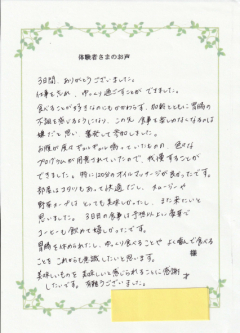 体験者さまのお声
3日間、ありがとうございました。
仕事を忘れ、ゆっくり過ごすことができました。
食べることが好きなのにもかかわらず、加齢とともに胃腸の
不調を感じるようになり、この先食事を楽しめなくなるのは
嫌だと思い、奮発して参加しました。
お腹が鳴ったものの、色々な
プログラムが用意されていたので、我慢することが
できました。特に120分のオイルマッサージが良かったです。
部屋は3タリもあって快適だし、スムージーや
野菜スープはとっても美味しかったし、また来たいと
思いました。3日目の食事は予想以上に豪華で
コーヒーも飲めて嬉しかったです。
胃腸を休められたし、ゆっくり食べることや よく噛んで食べる
ことを これからも意識したいと思います。
美味しいものを 美味しいと感じられることに感謝
したいです。有難うございました。
様